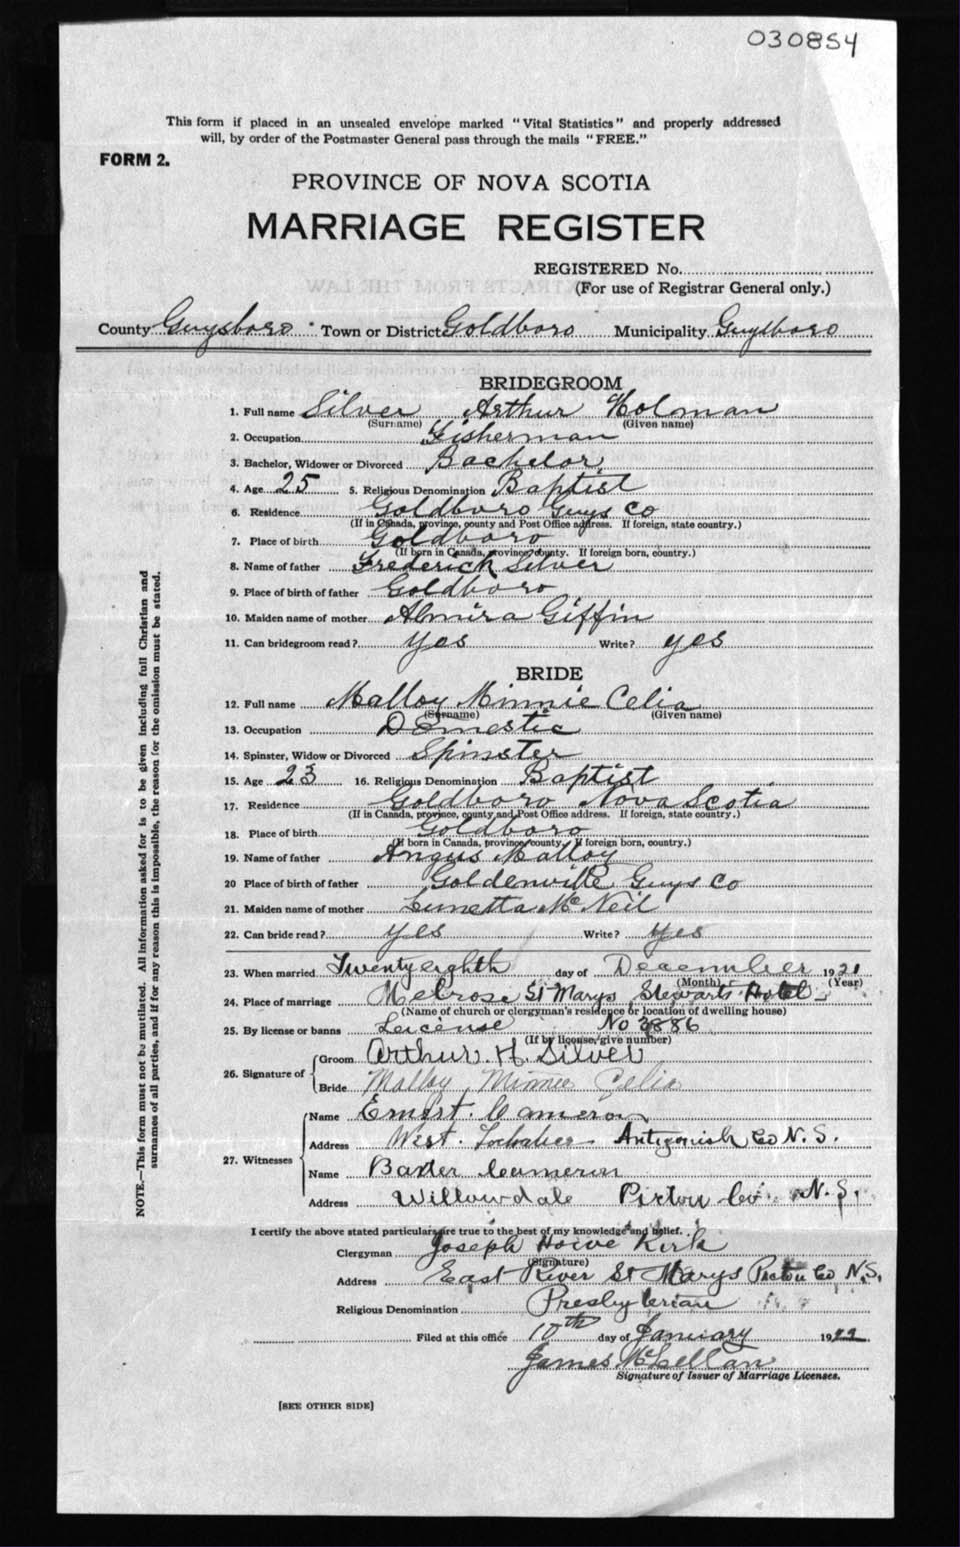 030854
This form if placed in an unsealed envelope marked "Vital Statistics" and properly addressed
will, by order of the Postmaster General pass through the mails "FREE."
FORM 2.
PROVINCE OF NOVA SCOTIA
MARRIAGE REGISTER
REGISTERED No.
(For use of Registrar General only.)
County Guysboro Town or District Goldboro Municipality Guysboro
BRIDEGROOM
1. Full name Silver Arthur Holman
(Surname) (Given name)
2. Occupation Fisherman
3. Bachelor, Widower or Divorced Bachelor
4. Age 25 5. Religious Denomination Baptist
6. Residence Goldboro Guys Co
(If in Canada, province, county and Post Office address. If foreign, state country.)
7. Place of birth Goldboro
(If born in Canada, province, county. If foreign born, country.)
8. Name of father Frederick Silver
9. Place of birth of father Goldboro
10. Maiden name of mother Almira Giffin
11. Can bridegroom read? yes Write? yes
BRIDE
12. Full name Malloy Minnie Celia
(Surname) (Given name)
13. Occupation Domestic
14. Spinster, Widow or Divorced Spinster
15. Age 23 16. Religious Denomination Baptist
17. Residence Goldboro Nova Scotia
(If in Canada, province, county and Post Office address. If foreign, state country.)
18. Place of birth Goldboro
(If born in Canada, province, county. If foreign born, country.)
19. Name of father Angus Malloy
20 Place of birth of father Goldenville Guys Co
21. Maiden name of mother Lunetta McNeil
22. Can bride read? yes Write? yes
23. When married Twenty eighth day of December 1921
(Month) (Year)
24. Place of marriage Melrose St Marys Stewarts Hotel
(Name of church or clergyman's residence or location of dwelling house)
25. By license or banns Leicense No 3886
(If by license, give number)
26. Signature of
Groom Arthur. H. Silver
Bride Malloy Minnie Celia
27. Witnesses
Name Ernest Cameron
Address West. Lochaber Antigonish Co N. S.
Name Baxter Cameron
Address Willowdale Pictou Co. N. S.
I certify the above stated particulars are true to the best of my knowledge and belief.
Clergyman Joseph Howe Kirk
(Signature)
Address East River St Marys Pictou Co N.S.
Religious Denomination Presbyterian
Filed at this office 10th day of January 1922
James McLellan
Signature of Issuer of Marriage Licenses.
[SEE OTHER SIDE]
NOTE.—This form must not be mutilated. All information asked for is to be given including full Christian and
surnames of all parties, and if for any reason this is impossible, the reason for the omission must be stated.